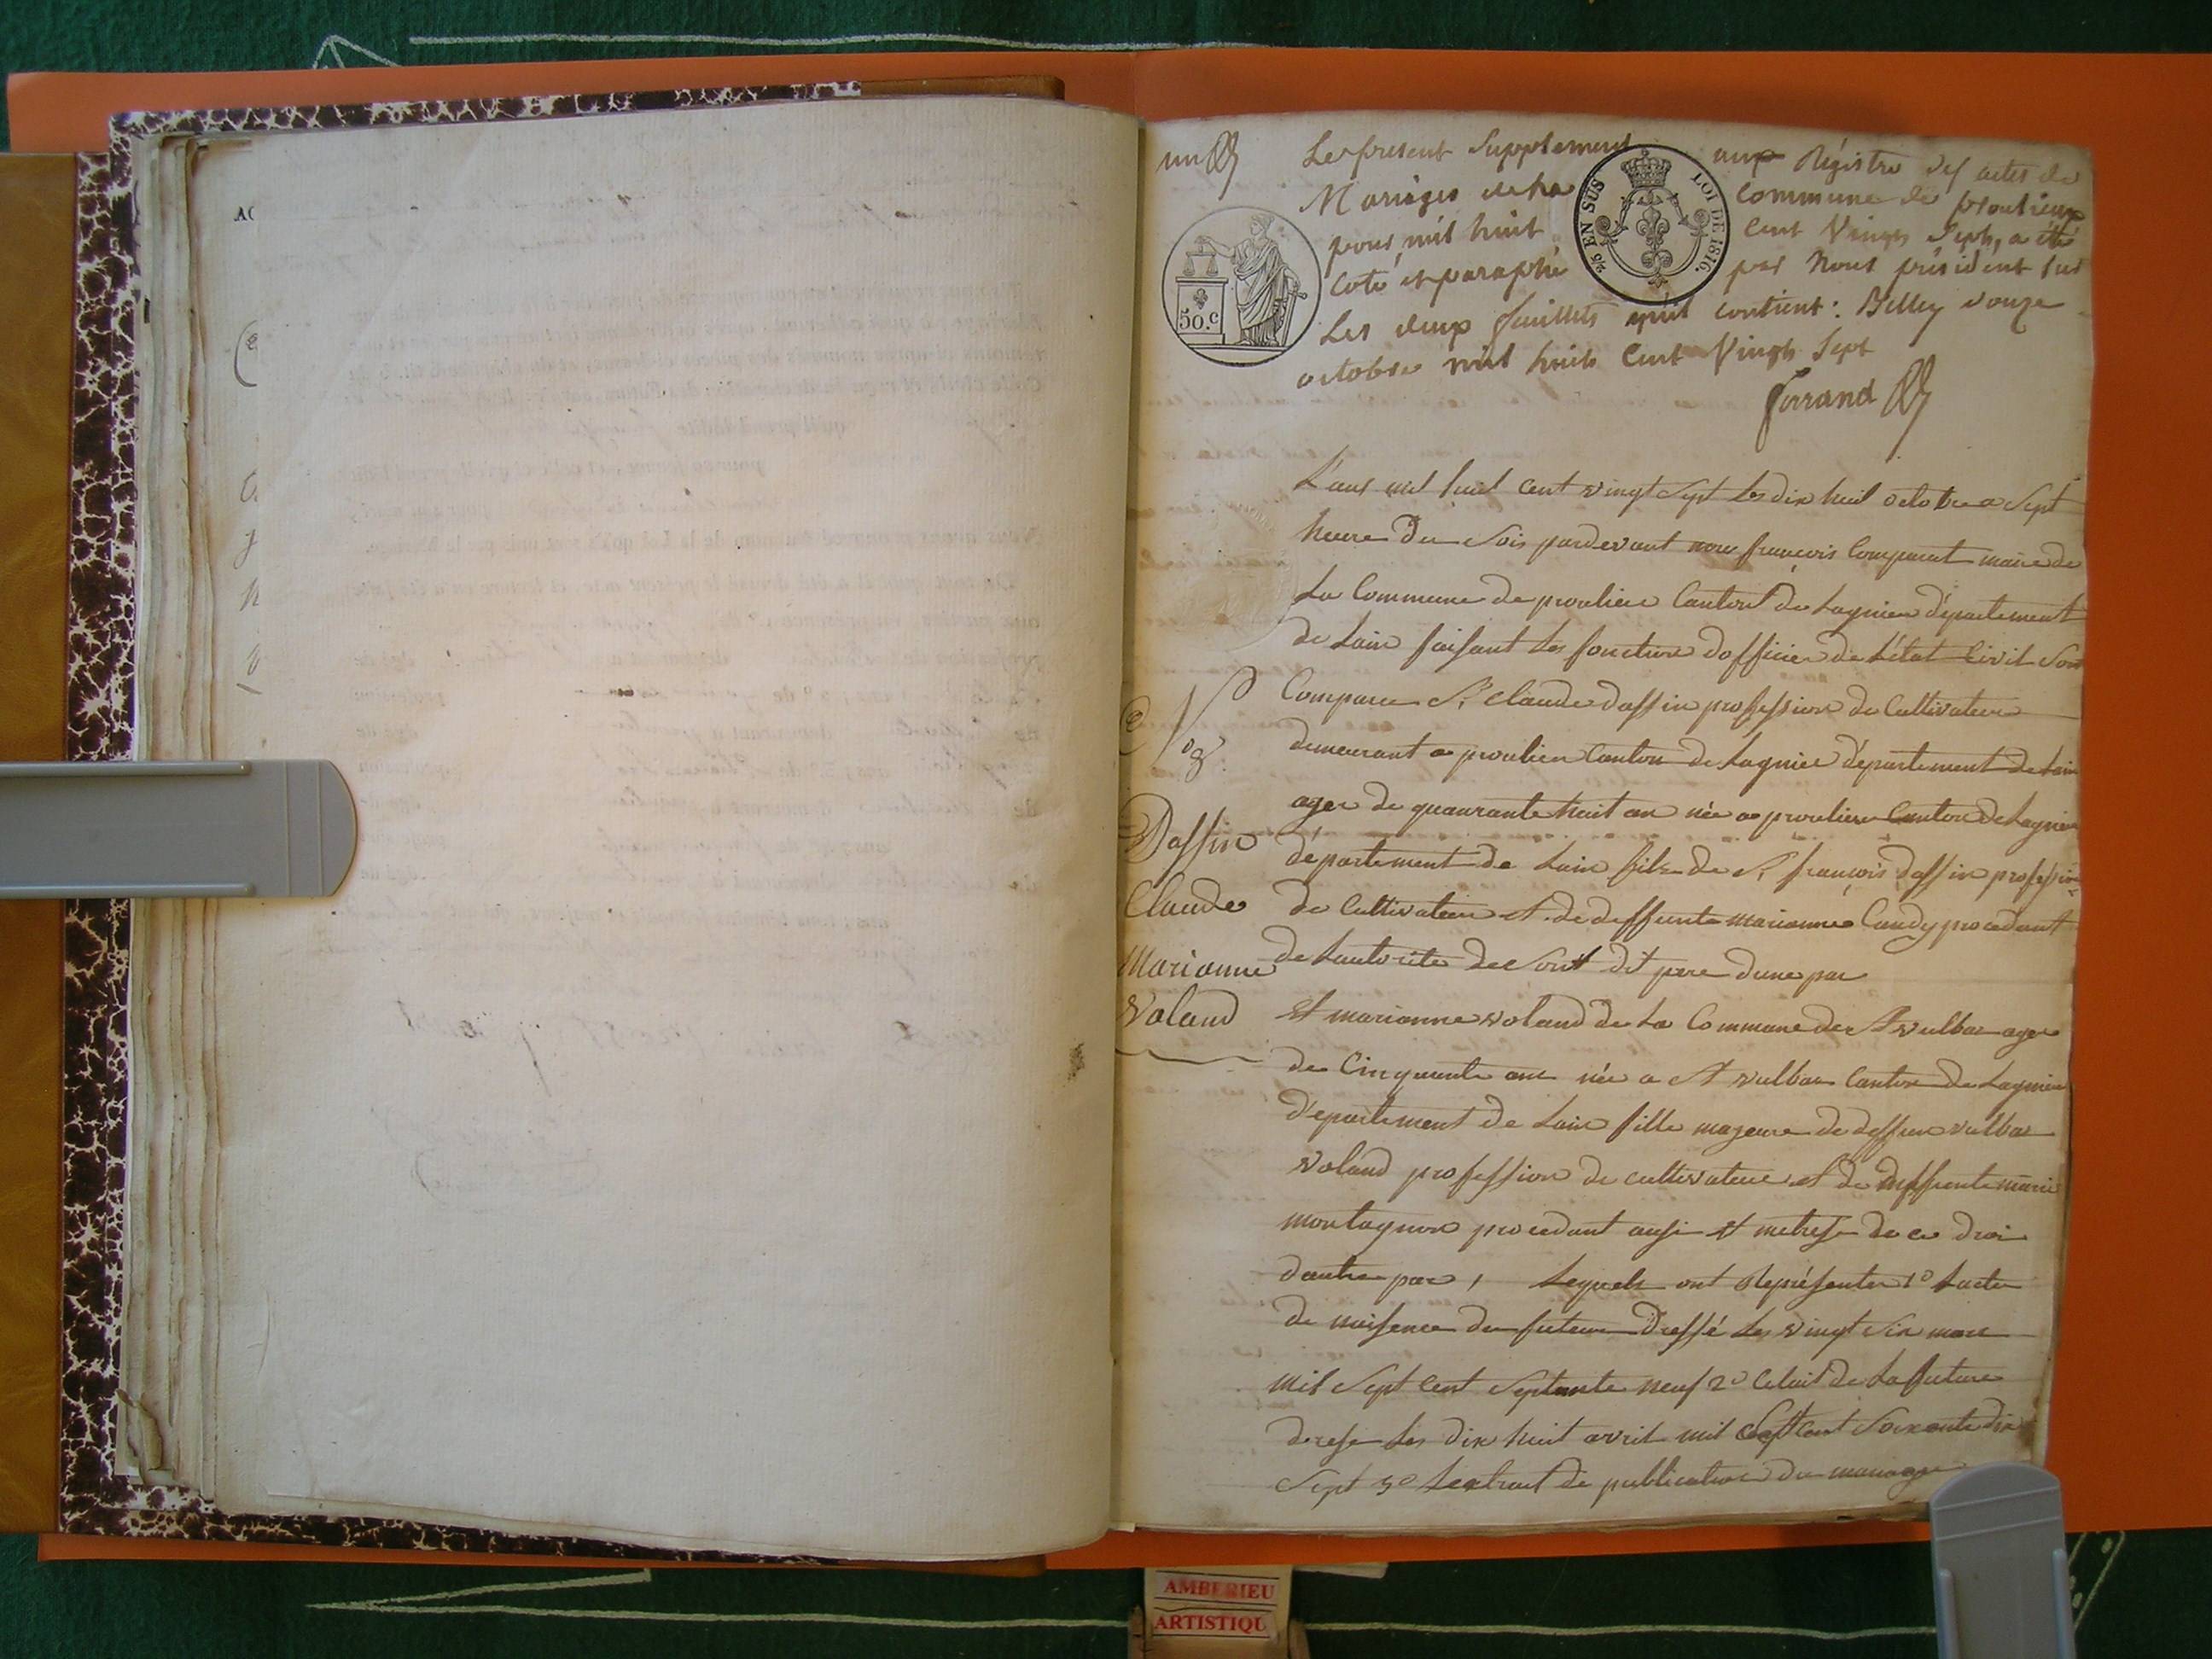 un
Le present Supplement aux Régistre des actes de
Mariages de la commune de proulieux
pour mil huit Cent Vingt Sept, a été
Coté et paraphé par Nous président sur
Les deux feuillets qu'il contient : Belley onze
octobre mil huit Cent Vingt Sept
Ferrand
50.c
2/5 EN SUS LOI DE 1816.
L'ans mil huit cent vingt Sept Les dix huit octobre a Sept
heure Du Soir pardevant nous françois Comparat maire de
La Commune de proulieu Canton De Lagnieu département
de Lain faisant Les fonction dofficier de Létat Civil Son
Comparu Sr Claude dassin profession de Cultivateur
demeurant a proulieu Canton de Lagnieu département de Lain
ager de quaurante huit an née a proulieu Canton De Lagnieu
département de Lain fils de Sr françois dassin profession
de Cultivateur et de deffunte marianne Candy procedant
de Lautorite de Sont dit pere dune par
Dassin
Claude
Marianne
Voland
et marianne voland de La Commune de St vulbas ager
de Cinquante ans née a St vulbas Canton de Lagnieu
département de Lain fille mageure de deffun vulbas
voland profession de cultivateur et de deffunte marie
montagnon procedant ausi et metresse de ce droi
dautre par, Lequels ont Représenter 1o Lacte
de naissence du futeur Dressé Les vingt Six mars
mil Sept Cent Septante neuf 2o Celuit de La future
drese Les dix huit avril mil Sept Cent Soixante dix
Sept 3o Lextrait de publication du mariage
AMBERIEU
ARTISTIQU